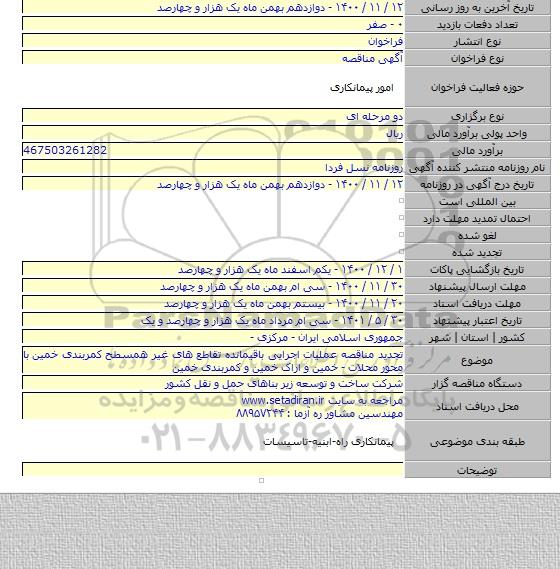 تاریخ آخرین به روز رسانی ۱۲ / ۱۱ / ۱۴۰۰ - دوازدهم بهمن ماه یک هزار و چهارصد
تعداد دفعات بازدید ۰ - صفر
نوع انتشار فراخوان
نوع فراخوان آگهی مناقصه
حوزه فعالیت فراخوان امور پیمانکاری
نوع برگزاری دو مرحله ای
واحد پولی برآورد مالی ریال
برآورد مالی 467503261282
نام روزنامه منتشر کننده آگهی روزنامه نسل فردا
تاریخ درج آگهی در روزنامه ۱۲ / ۱۱ / ۱۴۰۰ - دوازدهم بهمن ماه یک هزار و چهارصد
بین المللی است
احتمال تمدید مهلت دارد
لغو شده
تجدید شده
تاریخ بازگشایی پاکات ۱ / ۱۲ / ۱۴۰۰ - یکم اسفند ماه یک هزار و چهارصد
مهلت ارسال پیشنهاد ۳۰ / ۱۱ / ۱۴۰۰ - سی ام بهمن ماه یک هزار و چهارصد
مهلت دریافت اسناد ۲۰ / ۱۱ / ۱۴۰۰ - بیستم بهمن ماه یک هزار و چهارصد
تاریخ اعتبار پیشنهاد ۳۰ / ۵ / ۱۴۰۱ - سی ام مرداد ماه یک هزار و چهارصد و یک
کشور | استان | شهر جمهوری اسلامی ایران - مرکزی -
موضوع تجدید مناقصه عملیات اجرایی باقیمانده تقاطع های غیر همسطح کمربندی خمین با
محور محلات - خمین و اراک خمین و کمربندی خمین
دستگاه مناقصه گزار شرکت ساخت و توسعه زیر بناهای حمل و نقل کشور
محل دریافت اسناد مراجعه به سایت www.setadiran.ir
مهندسین مشاور ره آزما : ۸۸۹۵۷۲۴۴
طبقه بندی موضوعی پیمانکاری راه-ابنیه-تاسیسات
توضیحات
۰۲۱-۸۸۳۴۹۶۷۰-۵